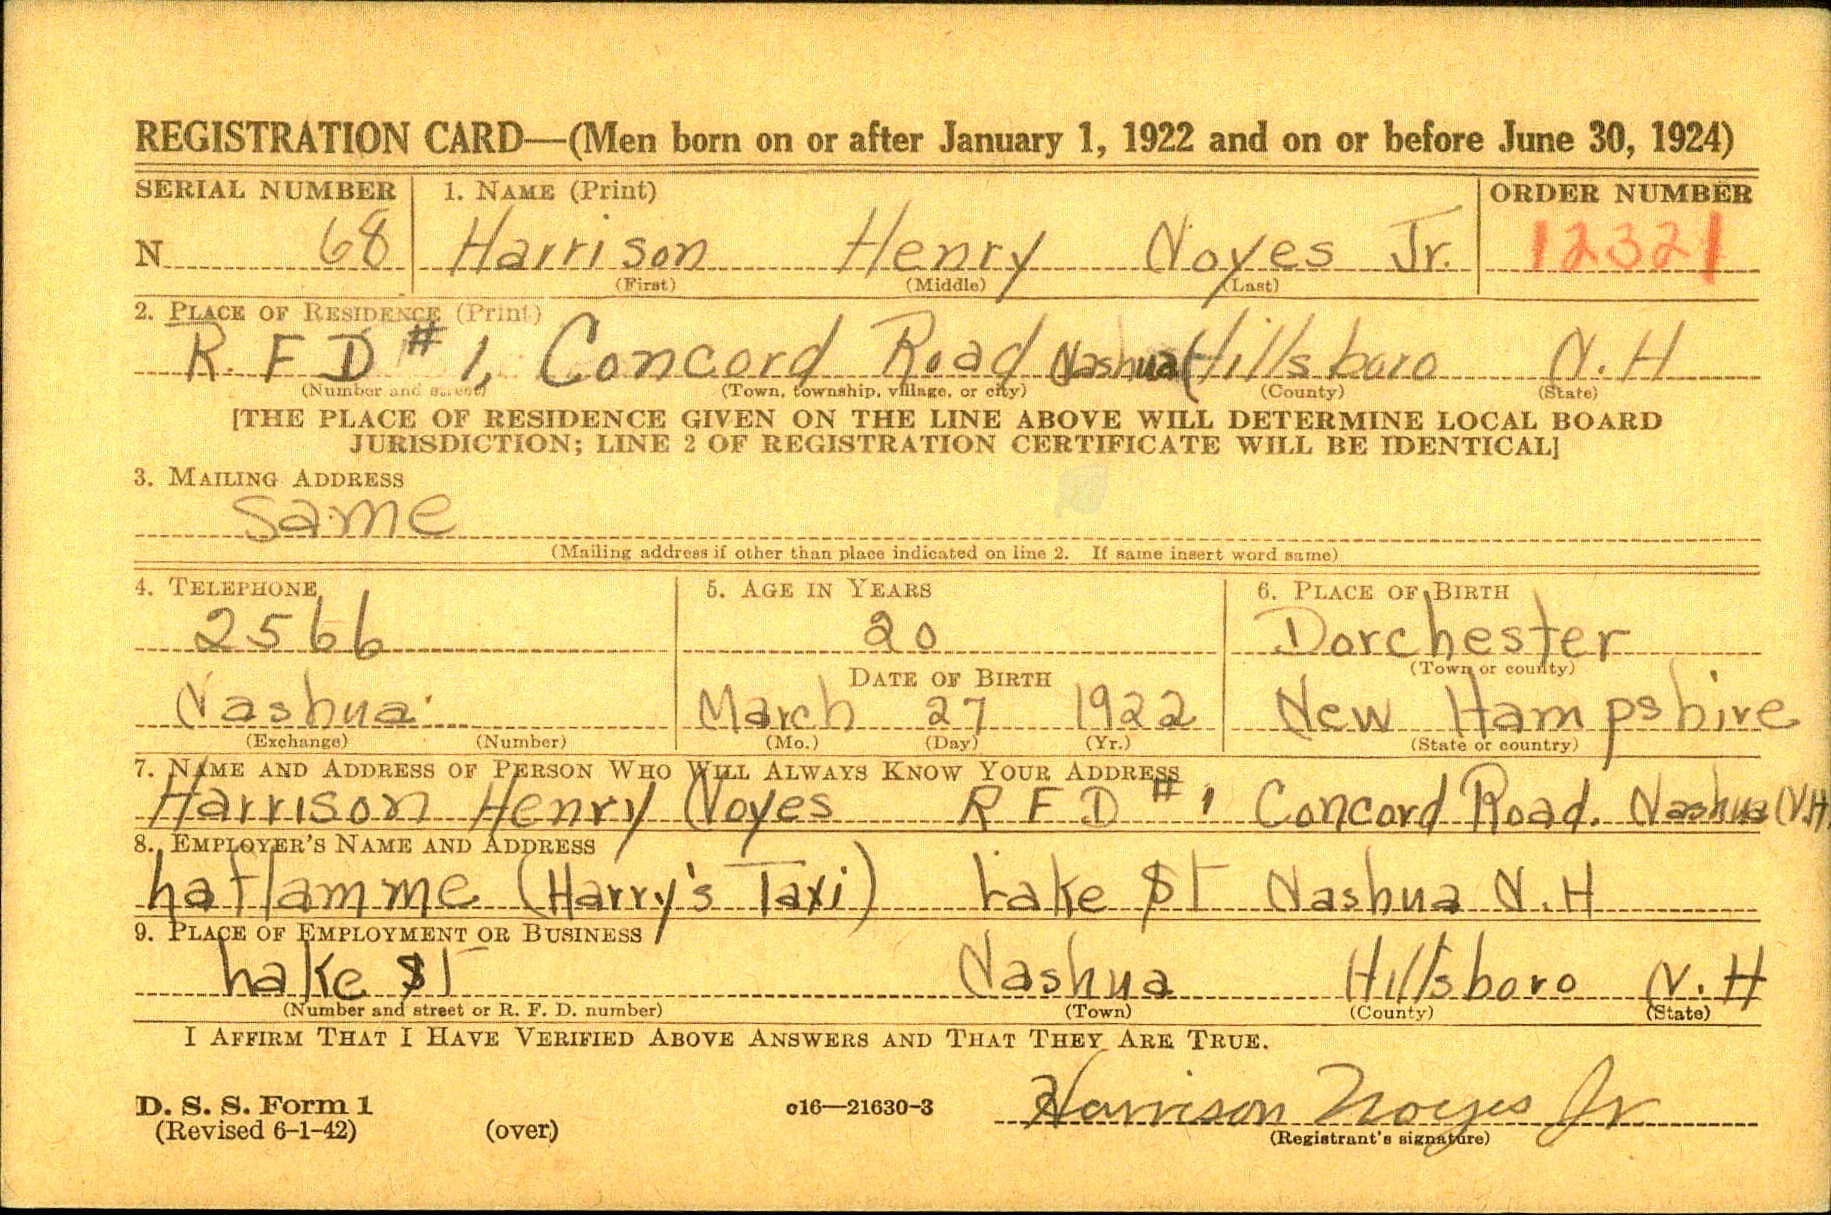 REGISTRATION CARD—(Men born on or after January 1, 1922 and on or before June 30, 1924)
SERIAL NUMBER 1. NAME (Print) ORDER NUMBER
N 68 Harrison Henry Noyes Jr. 12321
(First) (Middle) (Last)
2. PLACE OF RESIDENCE (Print)
R. F D # 1, Concord Road Nashua Hillsboro N. H
(Number and street) (Town, township, village, or city) (County) (State)
[THE PLACE OF RESIDENCE GIVEN ON THE LINE ABOVE WILL DETERMINE LOCAL BOARD
JURISDICTION; LINE 2 OF REGISTRATION CERTIFICATE WILL BE IDENTICAL]
3. MAILING ADDRESS
Same
(Mailing address if other than place indicated on line 2. If same insert word same)
4. TELEPHONE 5. AGE IN YEARS 6. PLACE OF BIRTH
2566 20 Dorchester
(Town or county)
DATE OF BIRTH
Nashua March 27 1922 New Hampshire
(Exchange) (Number) (Mo.) (Day) (Yr.) (State or country)
7. NAME AND ADDRESS OF PERSON WHO WILL ALWAYS KNOW YOUR ADDRESS
Harrison Henry Noyes R F D # 1 Concord Road. Nashua N.H.
8. EMPLOYER'S NAME AND ADDRESS
Laflamme (Harry's Taxi) Lake St Nashua N. H
9. PLACE OF EMPLOYMENT OR BUSINESS
Lake St Nashua Hillsboro N. H
(Number and street or R. F. D. number) (Town) (County) (State)
I AFFIRM THAT I HAVE VERIFIED ABOVE ANSWERS AND THAT THEY ARE TRUE.
D. S. S. Form 1 c16—21630-3 Harrison Noyes Jr
(Revised 6-1-42) (over) (Registrant's signature)